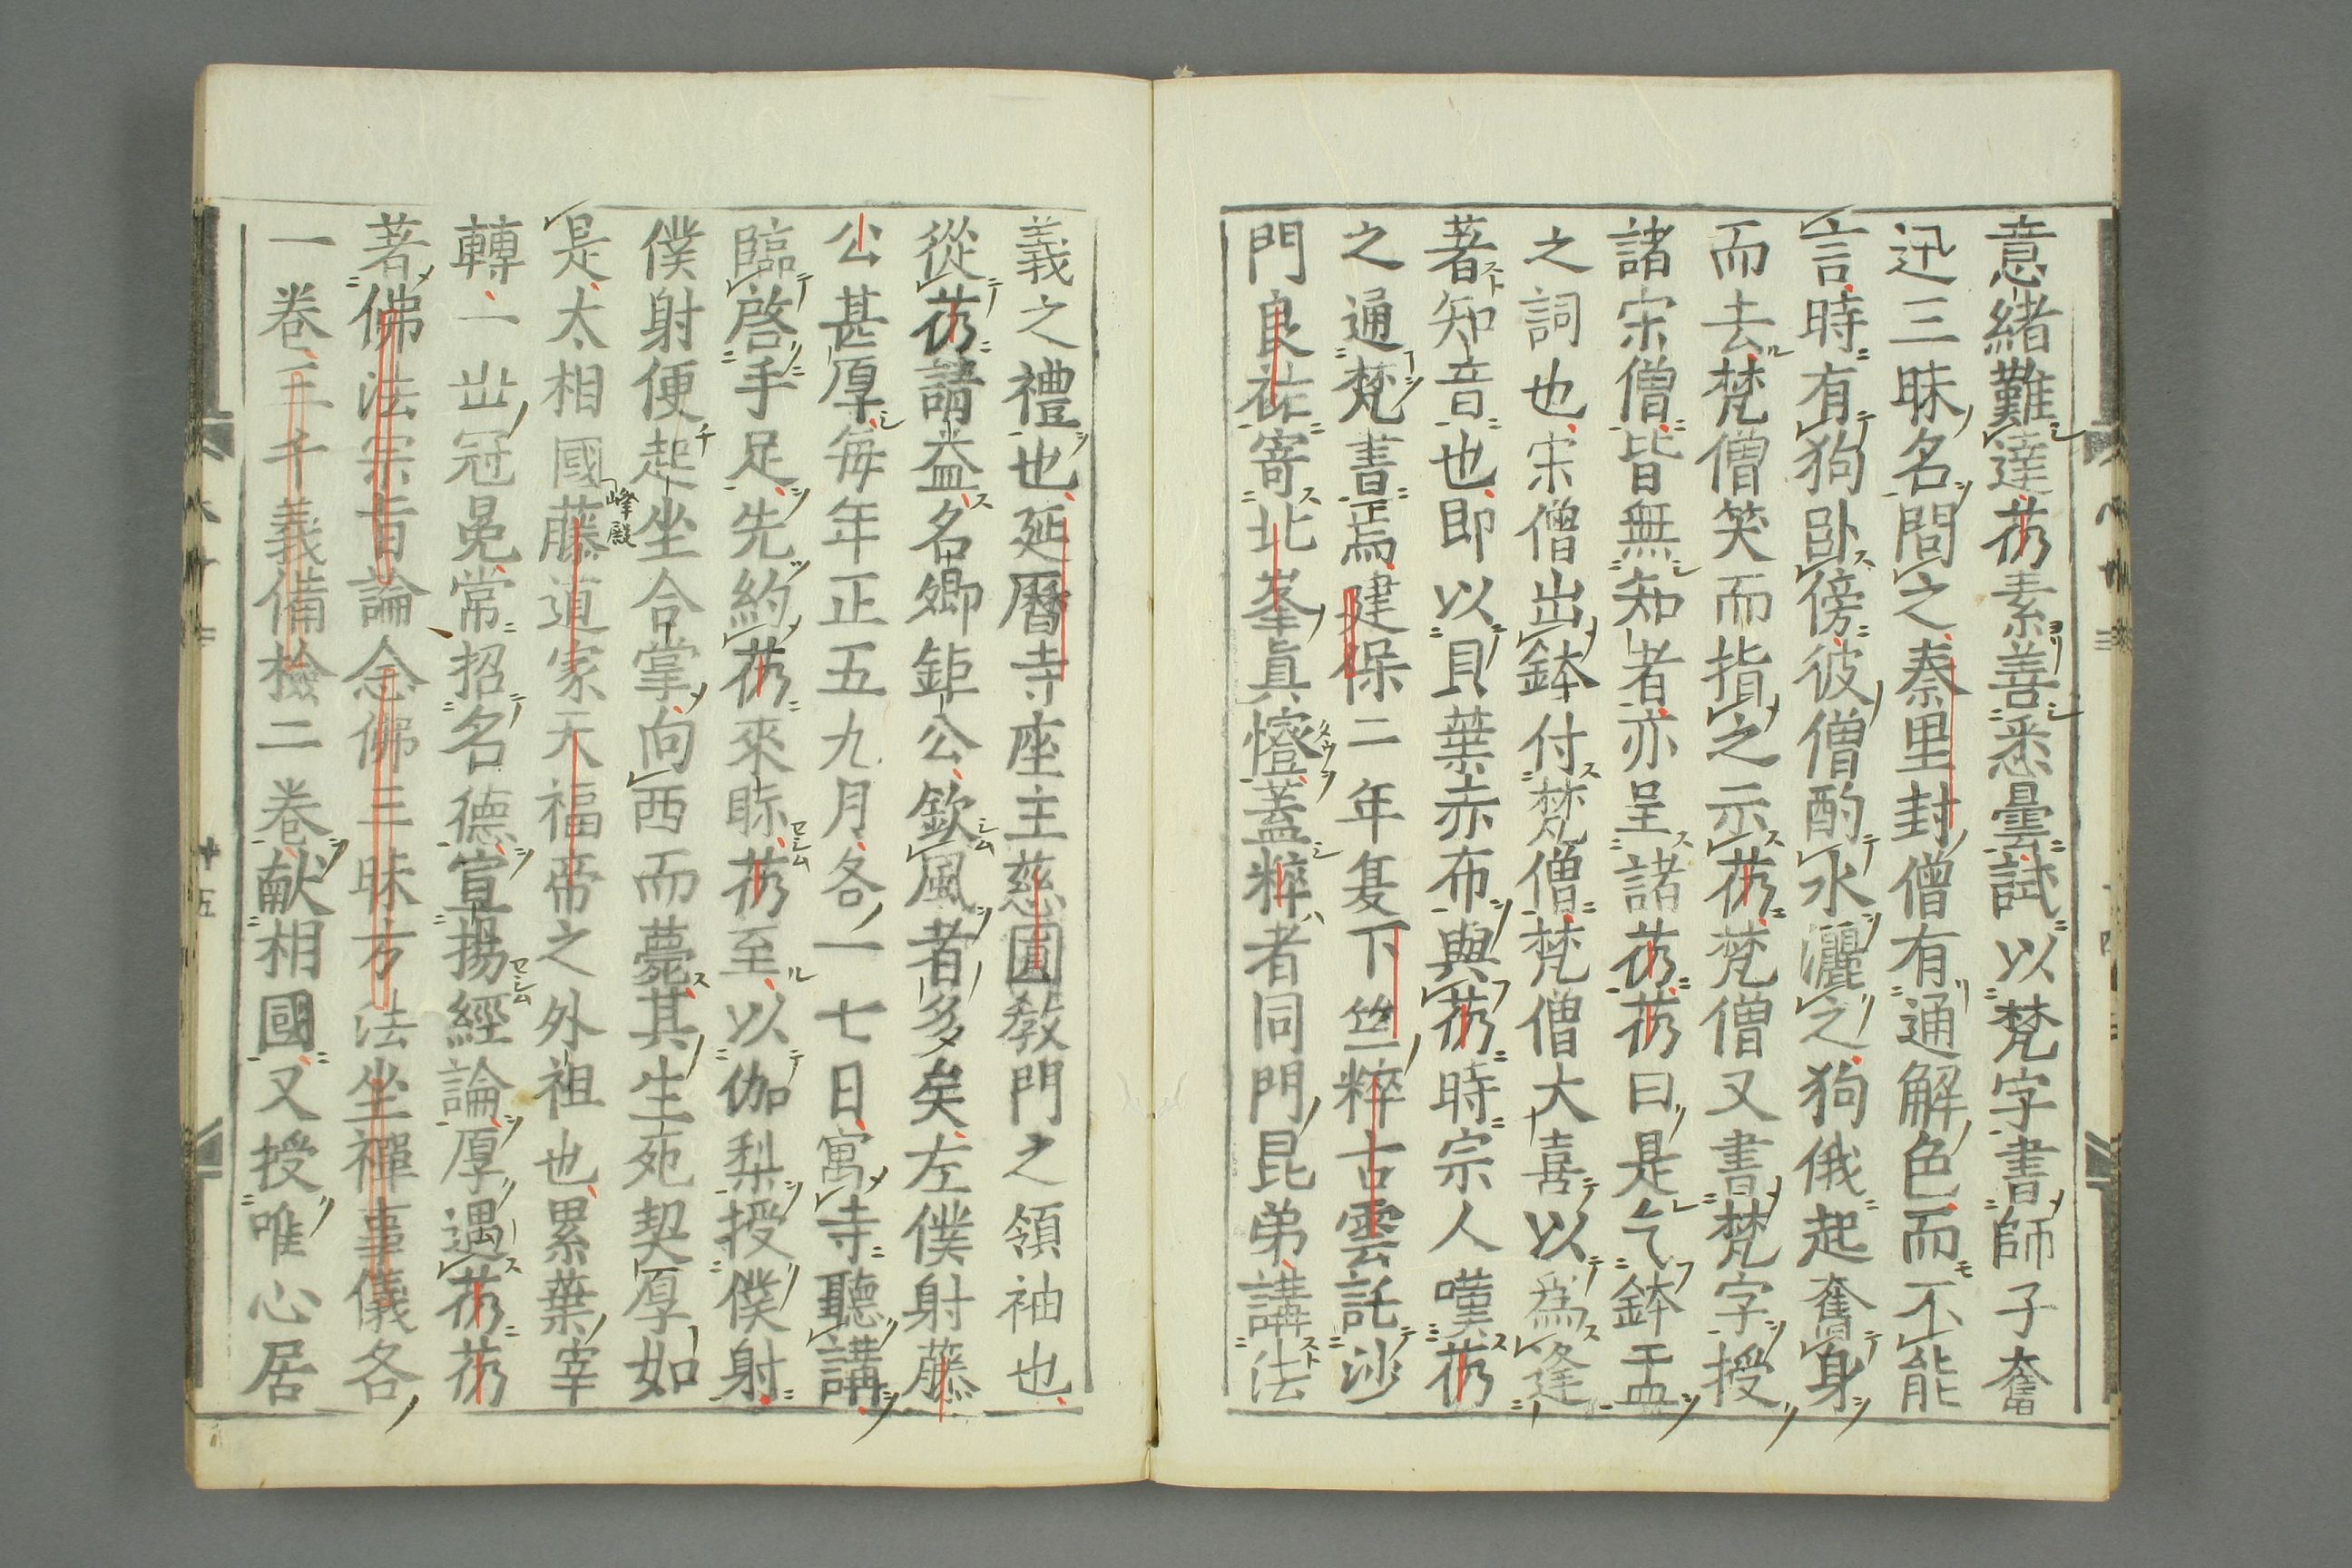 意緒難達芿素善悉曇試以梵字書師子奮
迅三昧名問之秦里封僧有通解色而不能
言時有狗卧傍彼僧酌水灑之狗俄起奮身
而去梵僧笑而指之示芿梵僧又書梵字授
諸宋僧皆無知者亦呈諸芿芿曰是乞鉢盂
之詞也宋僧出鉢付梵僧梵僧大喜以爲逢
著知音也即以貝葉赤布與芿時宗人嘆芿
之通梵書焉建保二年夏下竺粹古雲託沙
門良祐寄北峯眞幀蓋粹者同門昆弟講法
義之禮也延曆寺座主慈圓教門之領袖也
從芿請益名卿鉅公欽風者多矣左僕射藤
公甚厚每年正五九月各一七日寓寺聽講
臨啓手足先約芿來眎芿至以伽梨授僕射
僕射便起坐合掌向西而薨其生死契厚如
是太相國藤道家天福帝之外祖也累葉宰
峰殿
轉一岀冠冕常招名德宣揚經論厚遇芿芿
著佛法宗旨論念佛三昧方法坐禪事儀各
一卷三千義備檢二卷献相國又授唯心居